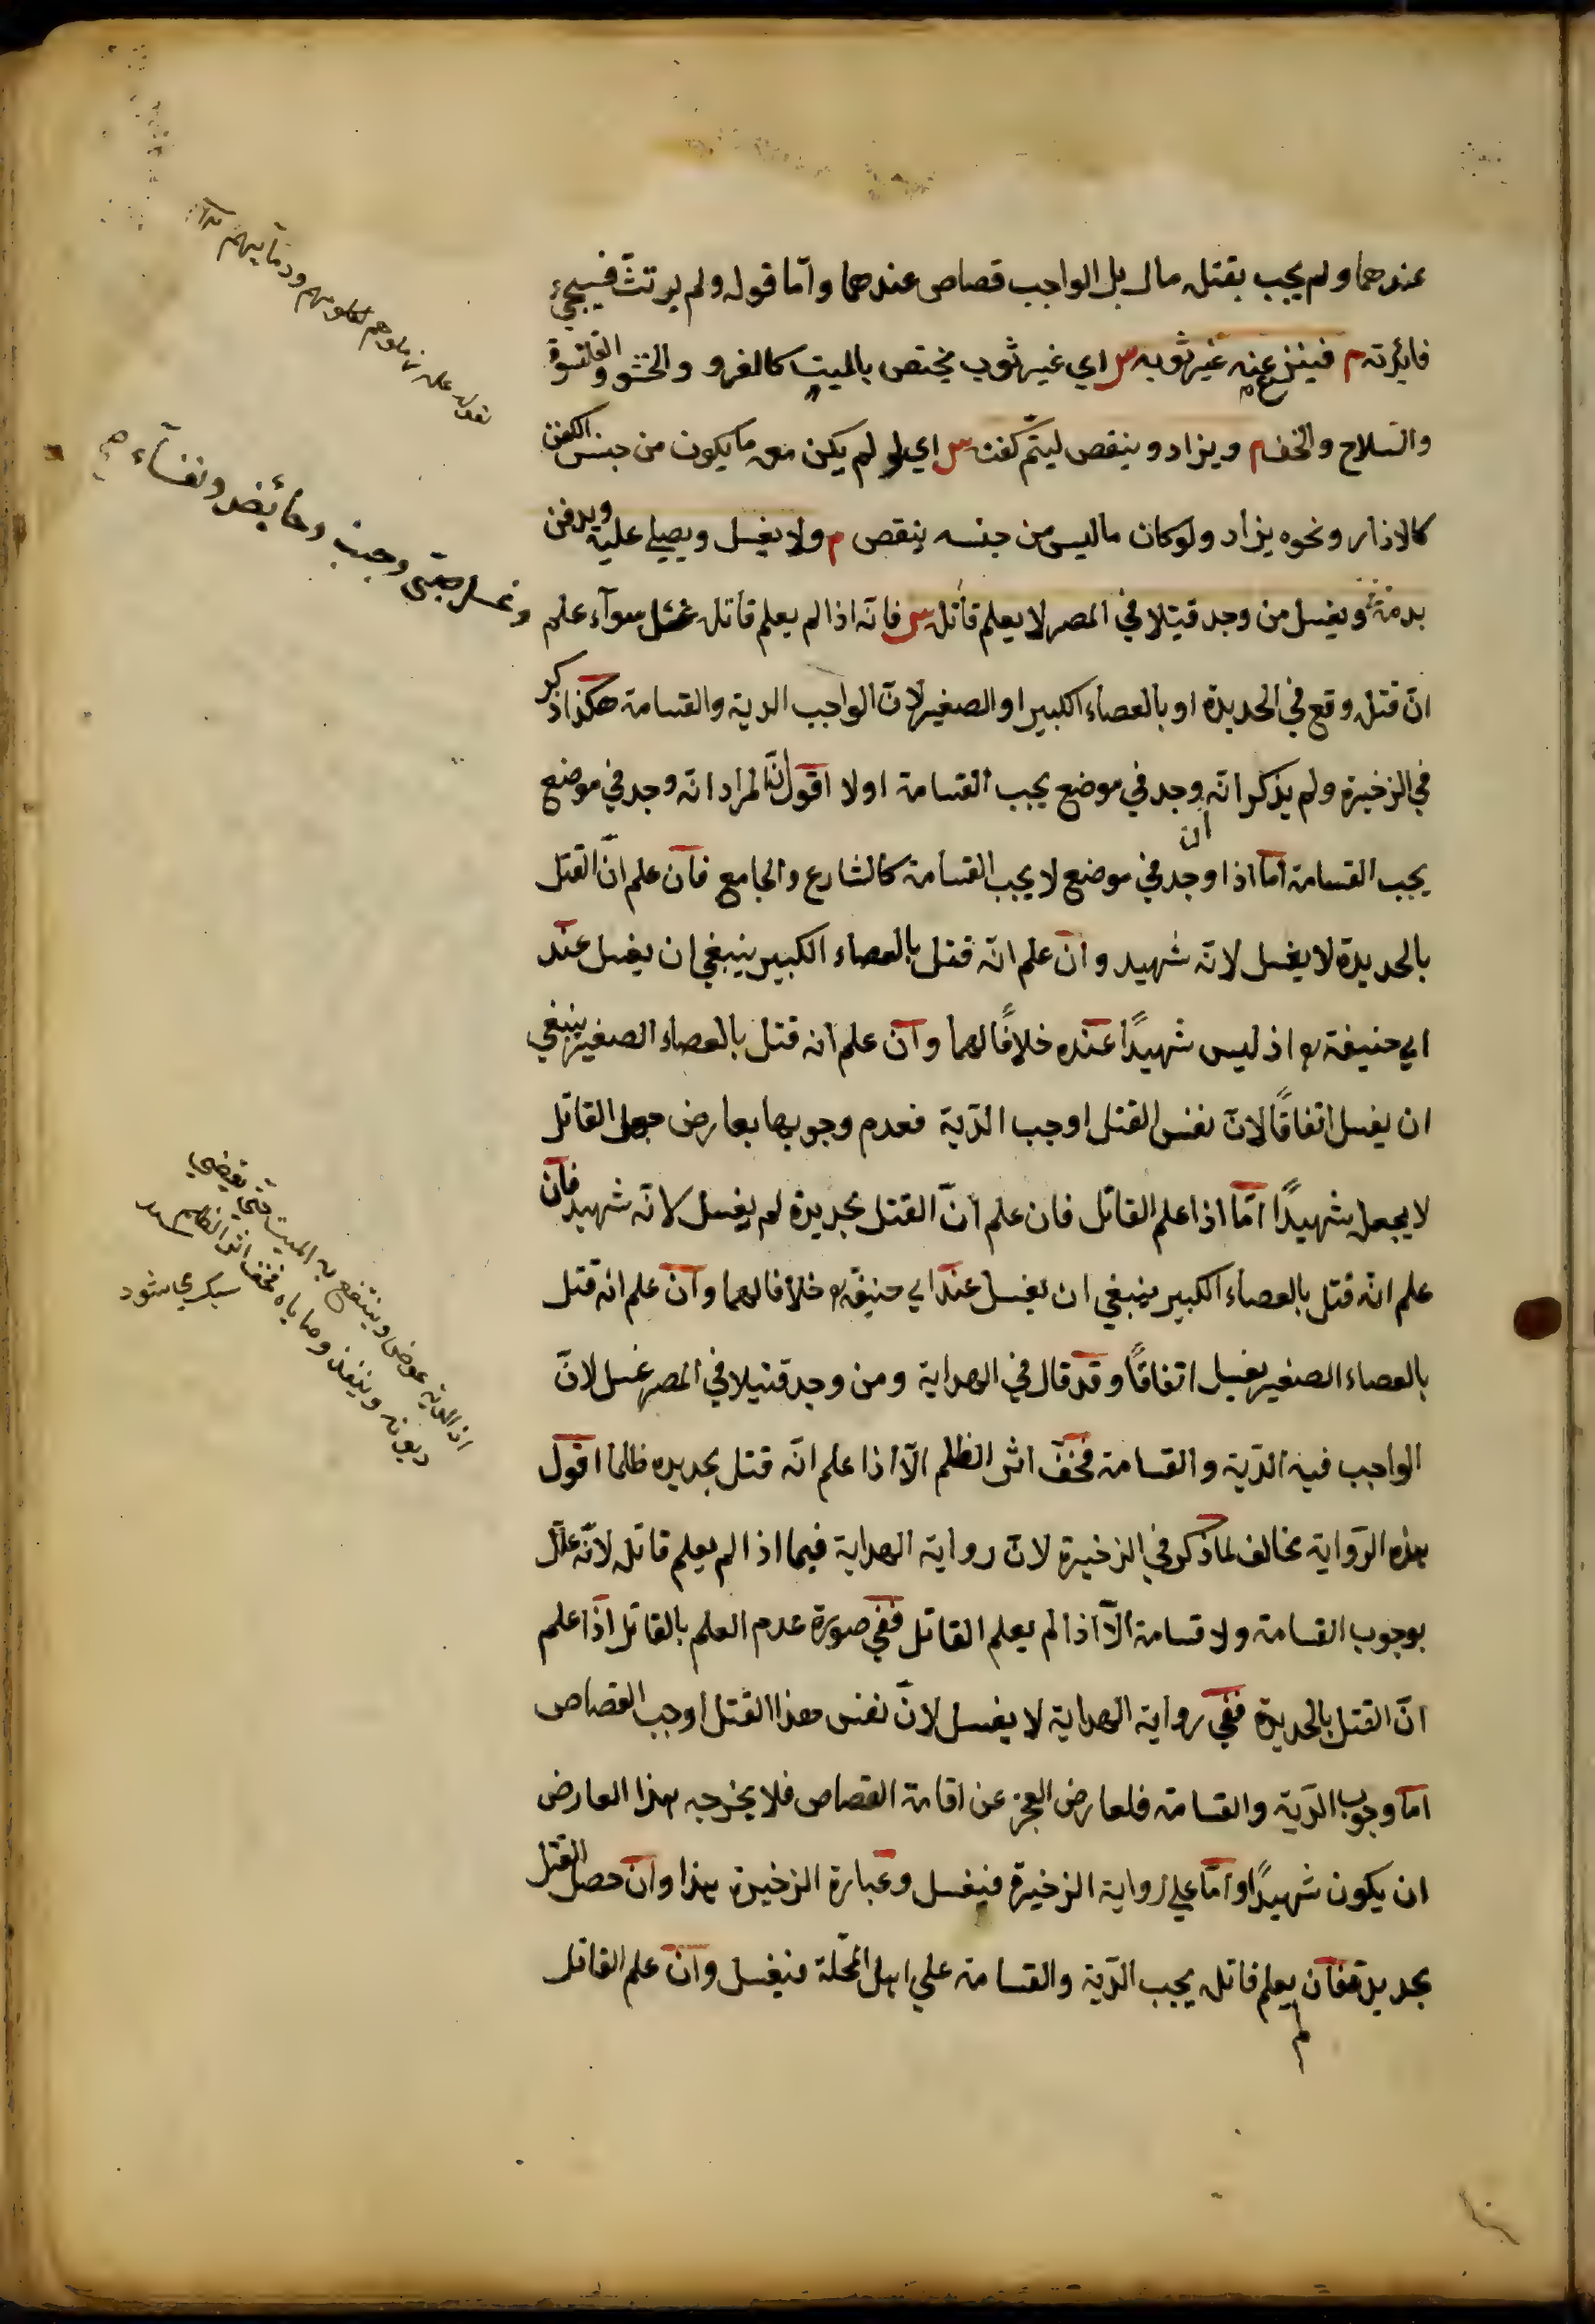 عندهما ولم يجب بقتله مال بل الواجب قصاص عندهما وامّا قوله ولم يرتثّ فسيجيء
فائدته م فينزع عنه غير ثوبه س اي غير ثوب يختص بالميت كالفرو والحشو والقلنسوة
والسّلاح والخف م ويزاد وينقص ليتمّ كفنه س اي لو لم يكن معه ما يكون من جنس الكفن
كالازار ونحوه يزاد ولو كان ما ليس من جنسه ينقص م ولا يغسل ويصلي عليه ويدفن
بدمه ويغسل من وجد قتيلا في المصر لا يعلم قاتله س فانّه اذا لم يعلم قاتله غسّل سوآء علم
انّ قتله وقع في الحديدة او بالعصاء الكبير او الصغير لانّ الواجب الدية والقسامة هكذا ذكر
في الزخيرة ولم يذكر انّه وجد في موضع يجب القسامة اولا اقول انّ المراد انّه وجد في موضع
يجب القسامة امّا اذا وجد في موضع لا يجب القسامة كالشارع والجامع فان علم انّ القتل
بالحديدة لا يغسل لانّه شهيد وان علم انّه قتل بالعصاء الكبير ينبغي ان يغسل عند
ابي حنيفة اذ ليس شهيدًا عنده خلافًا لهما وان علم انه قتل بالعصاء الصغير ينبغي
ان يغسل اتفاقًا لانّ نفس القتل اوجب الدّية فعدم وجوبها بعارض جهل القاتل
لا يجعله شهيدًا امّا اذا علم القاتل فان علم انّ القتل بحديدة لم يغسل لانّه شهيد فان
علم انّه قتل بالعصاء الكبير ينبغي ان يغسل عند ابي حنيفة خلافا لهما وان علم انه قتل
بالعصاء الصغير يغسل اتفاقًا وقد قال في الهداية ومن وجد قتيلا في المصر غسل لانّ
الواجب فيه الدّية والقسامة فخفّ اثر الظلم الّا اذا علم انّه قتل بحديده ظلما اقول
هذه الرّواية مخالف لما ذكر في الزخيرة لانّ رواية الهداية فيما اذا لم يعلم قاتله لانّه علّل
بوجوب القسامة ولا قسامة الّا اذا لم يعلم القاتل ففي صورة عدم العلم بالقاتل اذا علم
انّ القتل بالحديدة ففي رواية الهداية لا يغسل لانّ نفس هذا القتل اوجب القصاص
امّا وجوب الدّية والقسامة فلعارض العجز عن اقامة القصاص فلا يخرجه هذا العارض
ان يكون شهيدًا وامّا علي رواية الزخيرة فيغسل وعبارة الزخيرة هذا وان حصل القتل
بحديدة فان لم يعلم قاتله يجب الدّية والقسامة علي اهل المحلّة فيغسل وان علم القاتل
زملوهم بكلومهم ودمآئهم
وغسل صبّي وجنب وحائض ونفسآء
اذ الدية عوض وينتفع به الميت حتّى يقضى
ديونه وينفذ وصاياه فخف اثر الظلم
سبك می شود